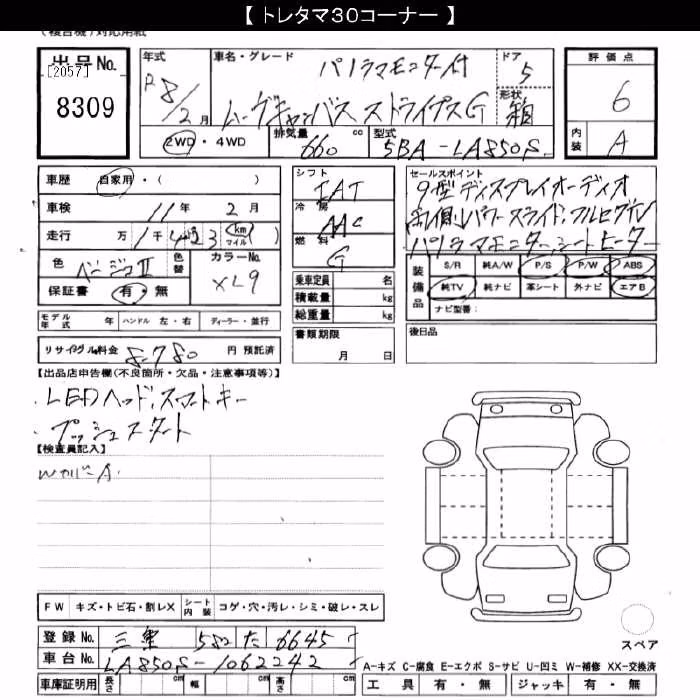 【 トレタマ30コーナー 】
(複合機)対応用紙
出品No.
[2057]
8309
年式
R8/2月
車名・グレード
パノラマモニター付
ムーヴキャンバス ストライプスG
ドア
5
形状
箱
評価点
6
内装
A
2WD・4WD
排気量
660 cc
型式
5BA-LA850S
車歴 自家用・( )
車検 11年 2月
走行 万 1千423 (km マイル)
色 ベージュII 色替 カラーNo. XL9
保証書 有・無
シフト
IAT
冷房
AAC
燃料
G
乗車定員 名
積載量 kg
総重量 kg
セールスポイント
9型ディスプレイオーディオ
両側パワースライド、フルセグTV
パノラマモニター、シートヒーター
装備品
S/R 純A/W P/S P/W ABS
純TV 純ナビ 革シート 外ナビ エアB
ナビ型番:
モデル年式 年 ハンドル 左・右 ディーラー・並行
リサイクル料金 8780 円 預託済
書類期限
月 日
後日品
【出品店申告欄(不良箇所・欠品・注意事項等)】
・LEDヘッド、スマートキー
・プッシュスタート
【検査員記入】
WカバーA
FW キズ・トビ石・割レX シート内装 コゲ・穴・汚レ・シミ・破レ・スレ
登録No. 三重 582 た 6645
車台No. LA850S-1062242
車庫証明用 長さ cm 幅 cm 高さ cm
スペア
A-キズ C-腐食 E-エクボ S-サビ U-凹ミ W-補修 XX-交換済
工具 有・無 ジャッキ 有・無